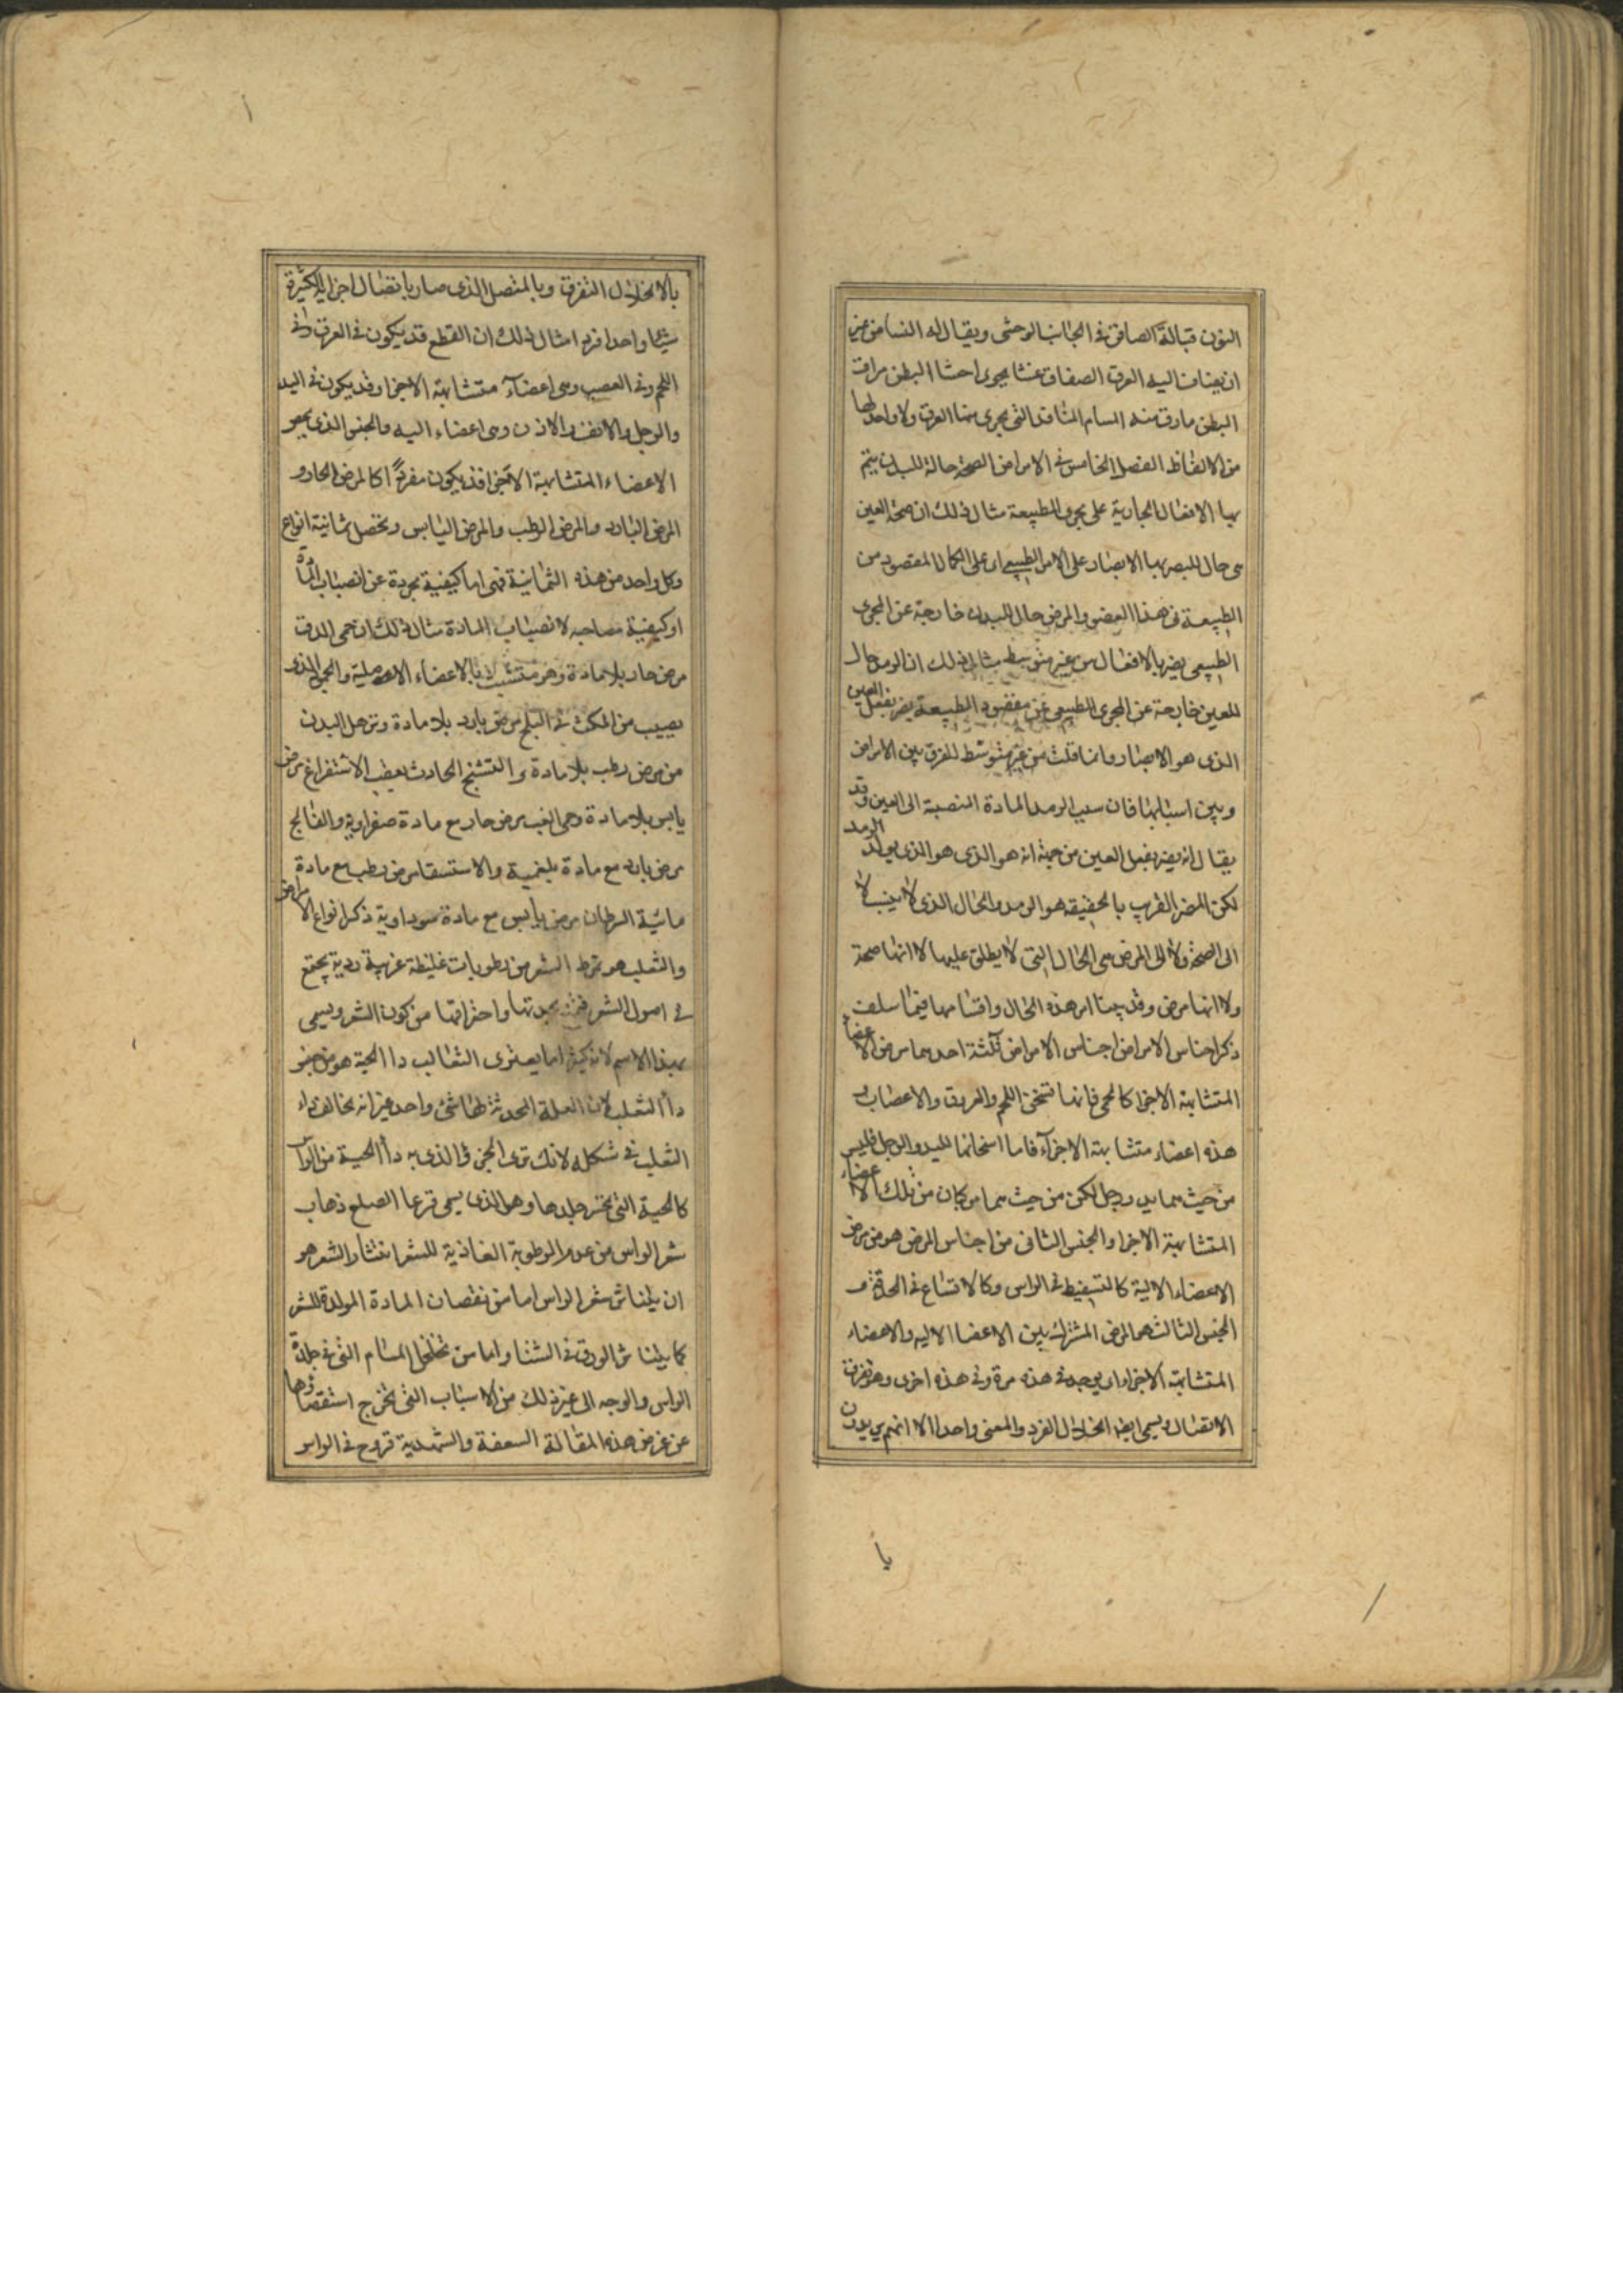 النون قبالة الصافن في الجانب الوحشي ويقال له النسا من غير
ان يضاف اليه العرق الصفاق غشا يحوى احشا البطن مراق
البطن مارق منه المسام المثاقب التي يجرى منها العرق ولا واحد لها
من الالفاظ الفصل الخامس في الامراض الصحة حالة للبدن يتم
بها الافعال الجارية على مجرى الطبيعة مثال ذلك ان صحة العين
هى حال للبصر بها الابصار على الامر الطبيعي اى على الكمال المقصود من
الطبيعة في هذا العضو والمرض حال للبدن خارجة عن المجرى
الطبيعي يضر بالافعال من غير متوسط مثال ذلك ان الرمد حال
للعين خارجة عن المجرى الطبيعي عن مقصود الطبيعة يضر بفعل العين
الذى هو الابصار وانما قلت من غير متوسط للفرق بين الامراض
وبين اسبابها فان سبب الرمد المادة المنصبة الى العين وقد
يقال انه يضر بفعل العين من جهة انه هو الذى هو الذى يولد الرمد
لكن المضر القريب بالحقيقه هو الرمد والحال الذى لا ينسب لا
الى الصحة ولا الى المرض هى الحال التى لا يطلق عليها لا انها صحة
ولا انها مرض وقد بينا امر هذه الحال واقسامها فيما سلف
ذكر اجناس الامراض اجناس الامراض ثلثة احدهما مرض الاعضاء
المتشابهة الاجزا كالحمى فانها تسخن اللحم والعروق والاعصاب
هذه اعضاء متشابهة الاجزآء فاما اسخانها لليد والرجل فليس
من حيث هما يد ورجل لكن من حيث هما مركبان من تلك الاعضاء
المتشابهة الاجزا والجنس الثانى من اجناس المرض هو من مرض
الاعضاء الالية كالتسفيط في الراس وكالاتساع في الحدقة و
الجنس الثالث هو المرض المشترك بين الاعضا الاليه والاعضاء
المتشابهة الاجزا اى يوجد في هذه مرة وفى هذه اخرى وهو تفرق
الاتصال ويسمى ايضا انحلال الفرد والمعنى واحد الا انهم يريدون
يا
بالانحلال التفرق وبالمتصل الذى صار باتصال اجزايه الكثيرة
شيئا واحدا فردا مثال ذلك ان القطع قد يكون في العرق وفى
اللحم وفى العصب وهى اعضآء متشابهة الاجزا وقد يكون في اليد
والرجل والانف والاذن وهى اعضاء اليه والجنس الذى يعم
الاعضاء المتشابهة الاجزا قد يكون مفردًا كالمرض الحار و
المرض البارد والمرض الرطب والمرض اليابس وتحصل ثمانية انواع
وكل واحد من هذه الثمانية فهى اما كيفية مجردة عن انصباب المادة
او كيفية مصاحبه لانصباب المادة مثال ذلك ان حمى الدق
مرض حار بلا مادة وهو متشبث بالاعضاء الاصلية والجمود الذى
يصيب من المكث في الثلج مرض بارد بلا مادة وترهل البدن
من مرض رطب بلا مادة والتشنج الحادث بعقب الاستفراغ مرض
يابس بلا مادة وحمى الغب مرض حار مع مادة صفراوية والفالج
مرض بارد مع مادة بلغمية والاستسقا مرض رطب مع مادة
مائية السرطان مرض يابس مع مادة سوداوية ذكر انواع الامراض
والثعلب هو تمرط الشعر من رطوبات غليظة غريبة ردية يجتمع
في اصول الشعر بحدتها واحتراقها من كون الشعر ويسمى
بهذا الاسم لانه كثيرا ما يعترى الثعالب دا الحية هو من جنس
دا الثعلب لان العلة المحدثة لهما شئ واحد غير انه يخالف داء
الثعلب في شكله لانك ترى الجزء الذى به دا الحية من الراس
كالحية التى تخسر جلدها وهو الذى يسمى قرعا الصلع ذهاب
شعر الراس من عدم الرطوبة الغاذية للشعر انتشار الشعر هو
ان يتناثر شعر الراس اما من نقصان المادة المولدة للشعر
كما يتناثر الورق في الشتا واما من تخلخل المسام التى في جلدة
الراس والوجه الى غير ذلك من الاسباب التى تخرج استقصاؤها
عن غرض هذه المقالة السعفة والشهدية قروح في الراس